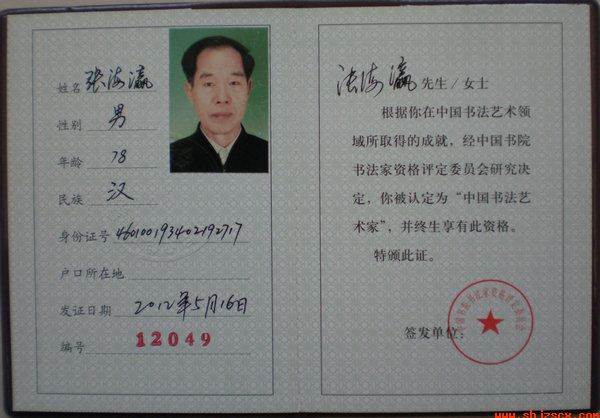 姓名 张海瀛
性别 男
年龄 78
民族 汉
身份证号 460100193402192717
户口所在地
发证日期 2012年5月16日
编号 12049
张海瀛 先生/女士
根据你在中国书法艺术领
域所取得的成就，经中国书院
书法家资格评定委员会研究决
定，你被认定为“中国书法艺
术家”，并终生享有此资格。
特颁此证。
签发单位：
www.shjzscx.com